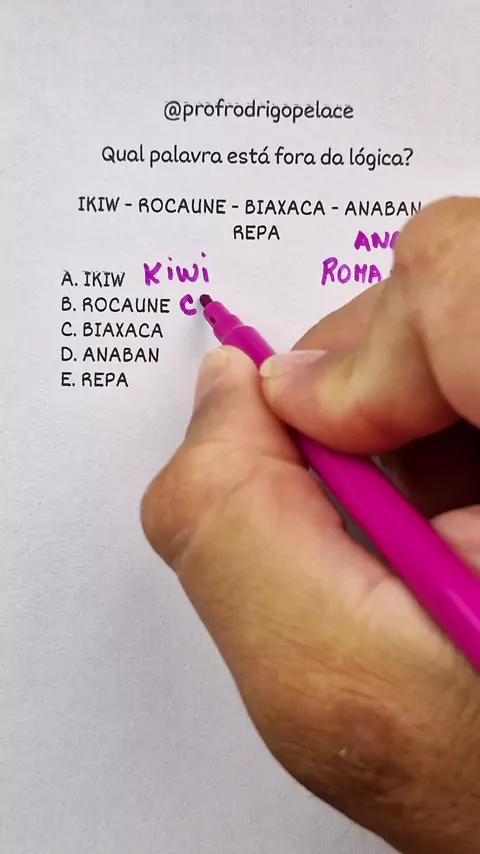 @profrodrigopelace
Qual palavra está fora da lógica?
IKIW - ROCAUNE - BIAXACA - ANABAN
REPA
AN
ROMA
A. IKIW Kiwi
B. ROCAUNE C
C. BIAXACA
D. ANABAN
E. REPA